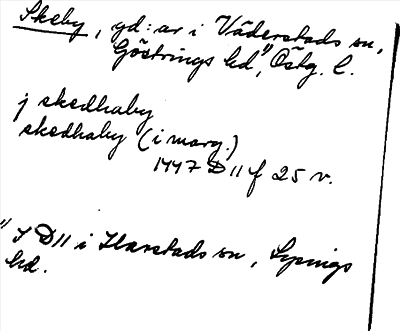 Skeby, gd:ar i Väderstads sn,
Göstrings hd", Östg. l.
j skedhaby
skedhaby (i marg.)
1447 D 11 f 25 v.
" I D 11 i Harstads sn, Lysings
hd.